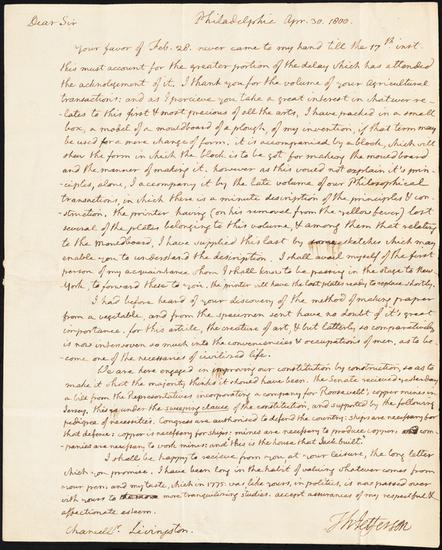 Dear Sir
Philadelphia Apr. 30. 1800.
Your favor of Feb. 28. never came to my hand till the 17th inst.
this must account for the greater portion of the delay which has attended
the acknolegment of it. I thank you for the volume of your Agricultural
transactions: and as I percieve you take a great interest in whatever re-
lates to this first & most precious of all the arts, I have packed in a small
box, a model of a mouldboard of a plough, of my invention, if that term may
be used for a mere change of form. it is accompanied by a block, which will
shew the form in which the block is to be got for making the mouldboard
and the manner of making it. however as this would not explain it's prin-
ciples, alone, I accompany it by the late volume of our Philosophical
transactions, in which there is a minute description of the principles & con-
struction. the printer having (on his removal from the yellow fever) lost
several of the plates belonging to this volume, & among them that relating
to the Mouldboard, I have supplied this last by some sketches which may
enable you to understand the description. I shall avail myself of the first
person of my acquaintance whom I shall know to be passing in the stage to New
York, to forward these to you. the printer will have the lost plates ready to replace shortly.
I had before heard of your discovery of the method of making paper
from a vegetable, and from the specimen sent have no doubt of it's great
importance. for this article, the creature of art, & but latterly so comparatively
is now interwoven so much into the conveniencies & occupations of men, as to be-
come one of the necessaries of civilized life.
We are here engaged in improving our constitution by construction, so as to
make it what the majority thinks it should have been. the Senate recieved yesterday
a bill from the Representatives incorporating a company for Roosevelt's copper mines in
Jersey. this is under the sweeping clause of the constitution, and supported by the following
pedigree of necessities. Congress are authorised to defend the country: ships are necessary for
that defence: copper is necessary for ships: mines are necessary to produce copper: com-
panies are necessary to work mines: and "this is the house that Jack built."
I shall be happy to recieve from you at your leisure, the long letter
which you promise. I have been long in the habit of valuing whatever comes from
your pen; and my taste, which in 1775. was, like yours, in politics, is now passed over
with yours to more tranquilizing studies. accept assurances of my respectful &
affectionate esteem.
Th: Jefferson
Chancellr. Livingston.